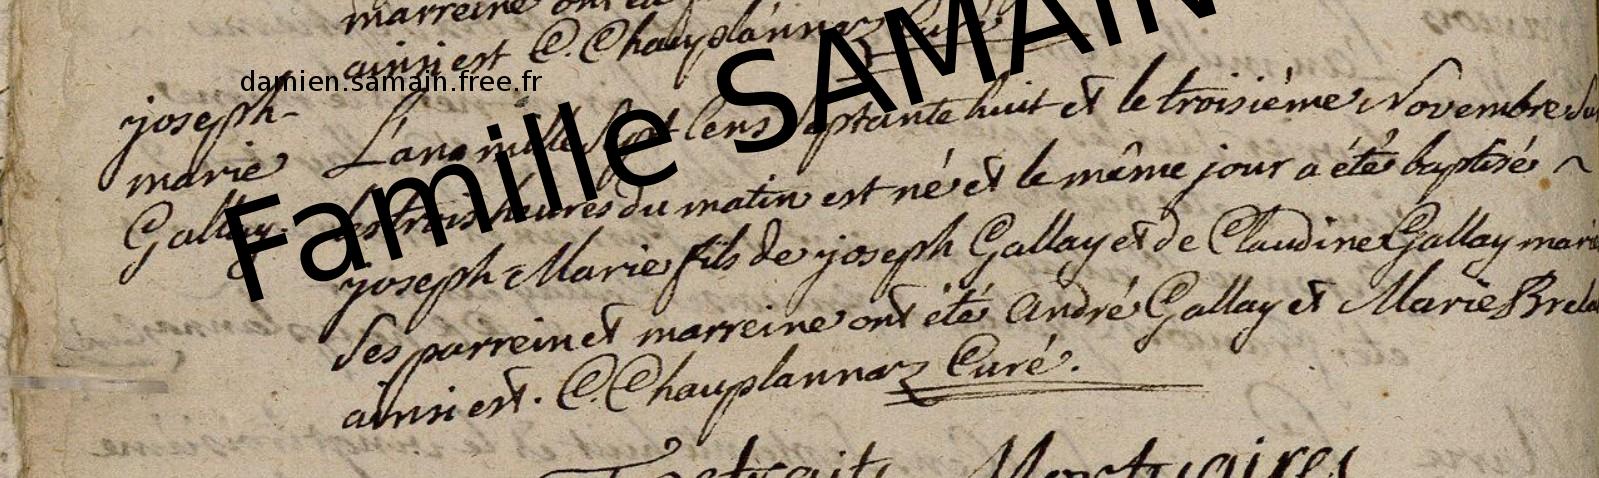 marreine ont été
ainsi est C. Chauplannaz Curé
damien.samain.free.fr
Famille SAMAIN
joseph-
marie
Gallay.
L'an mille Sept Cens Septante huit et le troisiéme Novembre Sur
les trois heures du matin est né et le même jour a été baptisé ~
joseph Marie fils de joseph Gallay et de Claudine Gallay mari
Ses parrein et marreine ont été André Gallay et Marie
ainsi est. C. Chauplannaz Curé.
Extraits Mortuaires